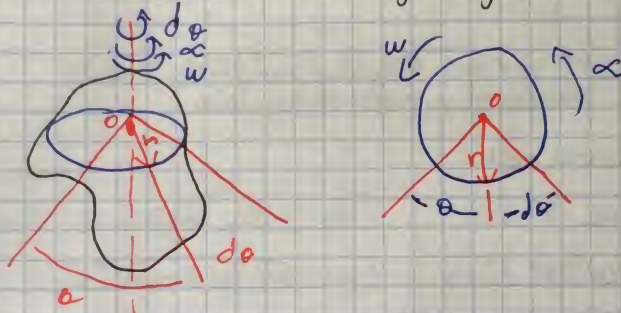 dθ
α
w
O
r
dθ
θ
w
α
O
r
θ
dθ